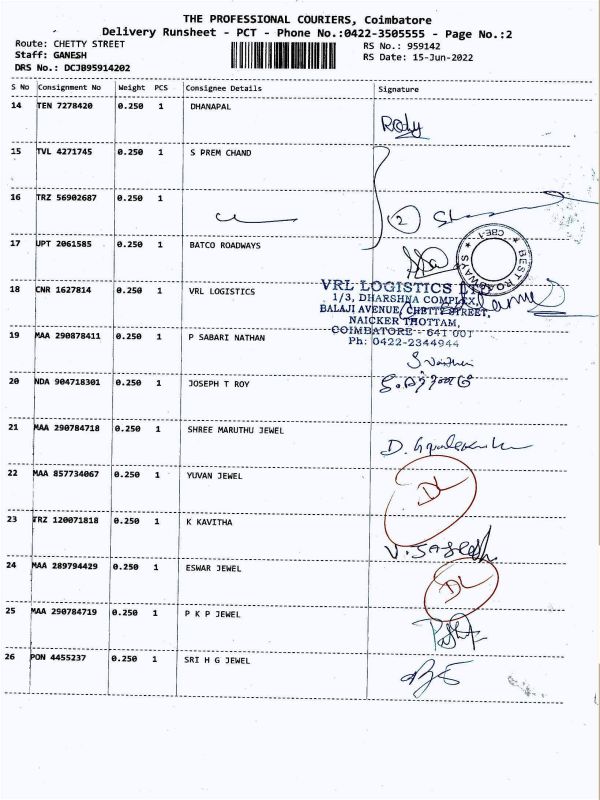 THE PROFESSIONAL COURIERS, Coimbatore
Delivery Runsheet - PCT - Phone No.:0422-3505555 - Page No.:2
Route: CHETTY STREET RS No.: 959142
Staff: GANESH RS Date: 15-Jun-2022
DRS No.: DCJ095914202
S No Consignment No Weight PCS Consignee Details Signature
14 TEN 7278420 0.250 1 DHANAPAL
15 TVL 4271745 0.250 1 S PREM CHAND
16 TRZ 56902687 0.250 1
2
17 UPT 2061585 0.250 1 BATCO ROADWAYS
CBE-1
BEST ROADWAYS
18 CNR 1627814 0.250 1 VRL LOGISTICS
VRL LOGISTICS LTD.
1/3, DHARSHNA COMPLEX,
BALAJI AVENUE, CHETTI STREET,
NAICKER THOTTAM,
COIMBATORE - 641 001
Ph: 0422-2344944
19 MAA 290878411 0.250 1 P SABARI NATHAN
20 NDA 904718301 0.250 1 JOSEPH T ROY
21 MAA 290784718 0.250 1 SHREE MARUTHU JEWEL
22 MAA 857734067 0.250 1 YUVAN JEWEL
DL
23 TRZ 120071818 0.250 1 K KAVITHA
24 MAA 289794429 0.250 1 ESWAR JEWEL
DL
25 MAA 290784719 0.250 1 P K P JEWEL
26 PON 4455237 0.250 1 SRI H G JEWEL